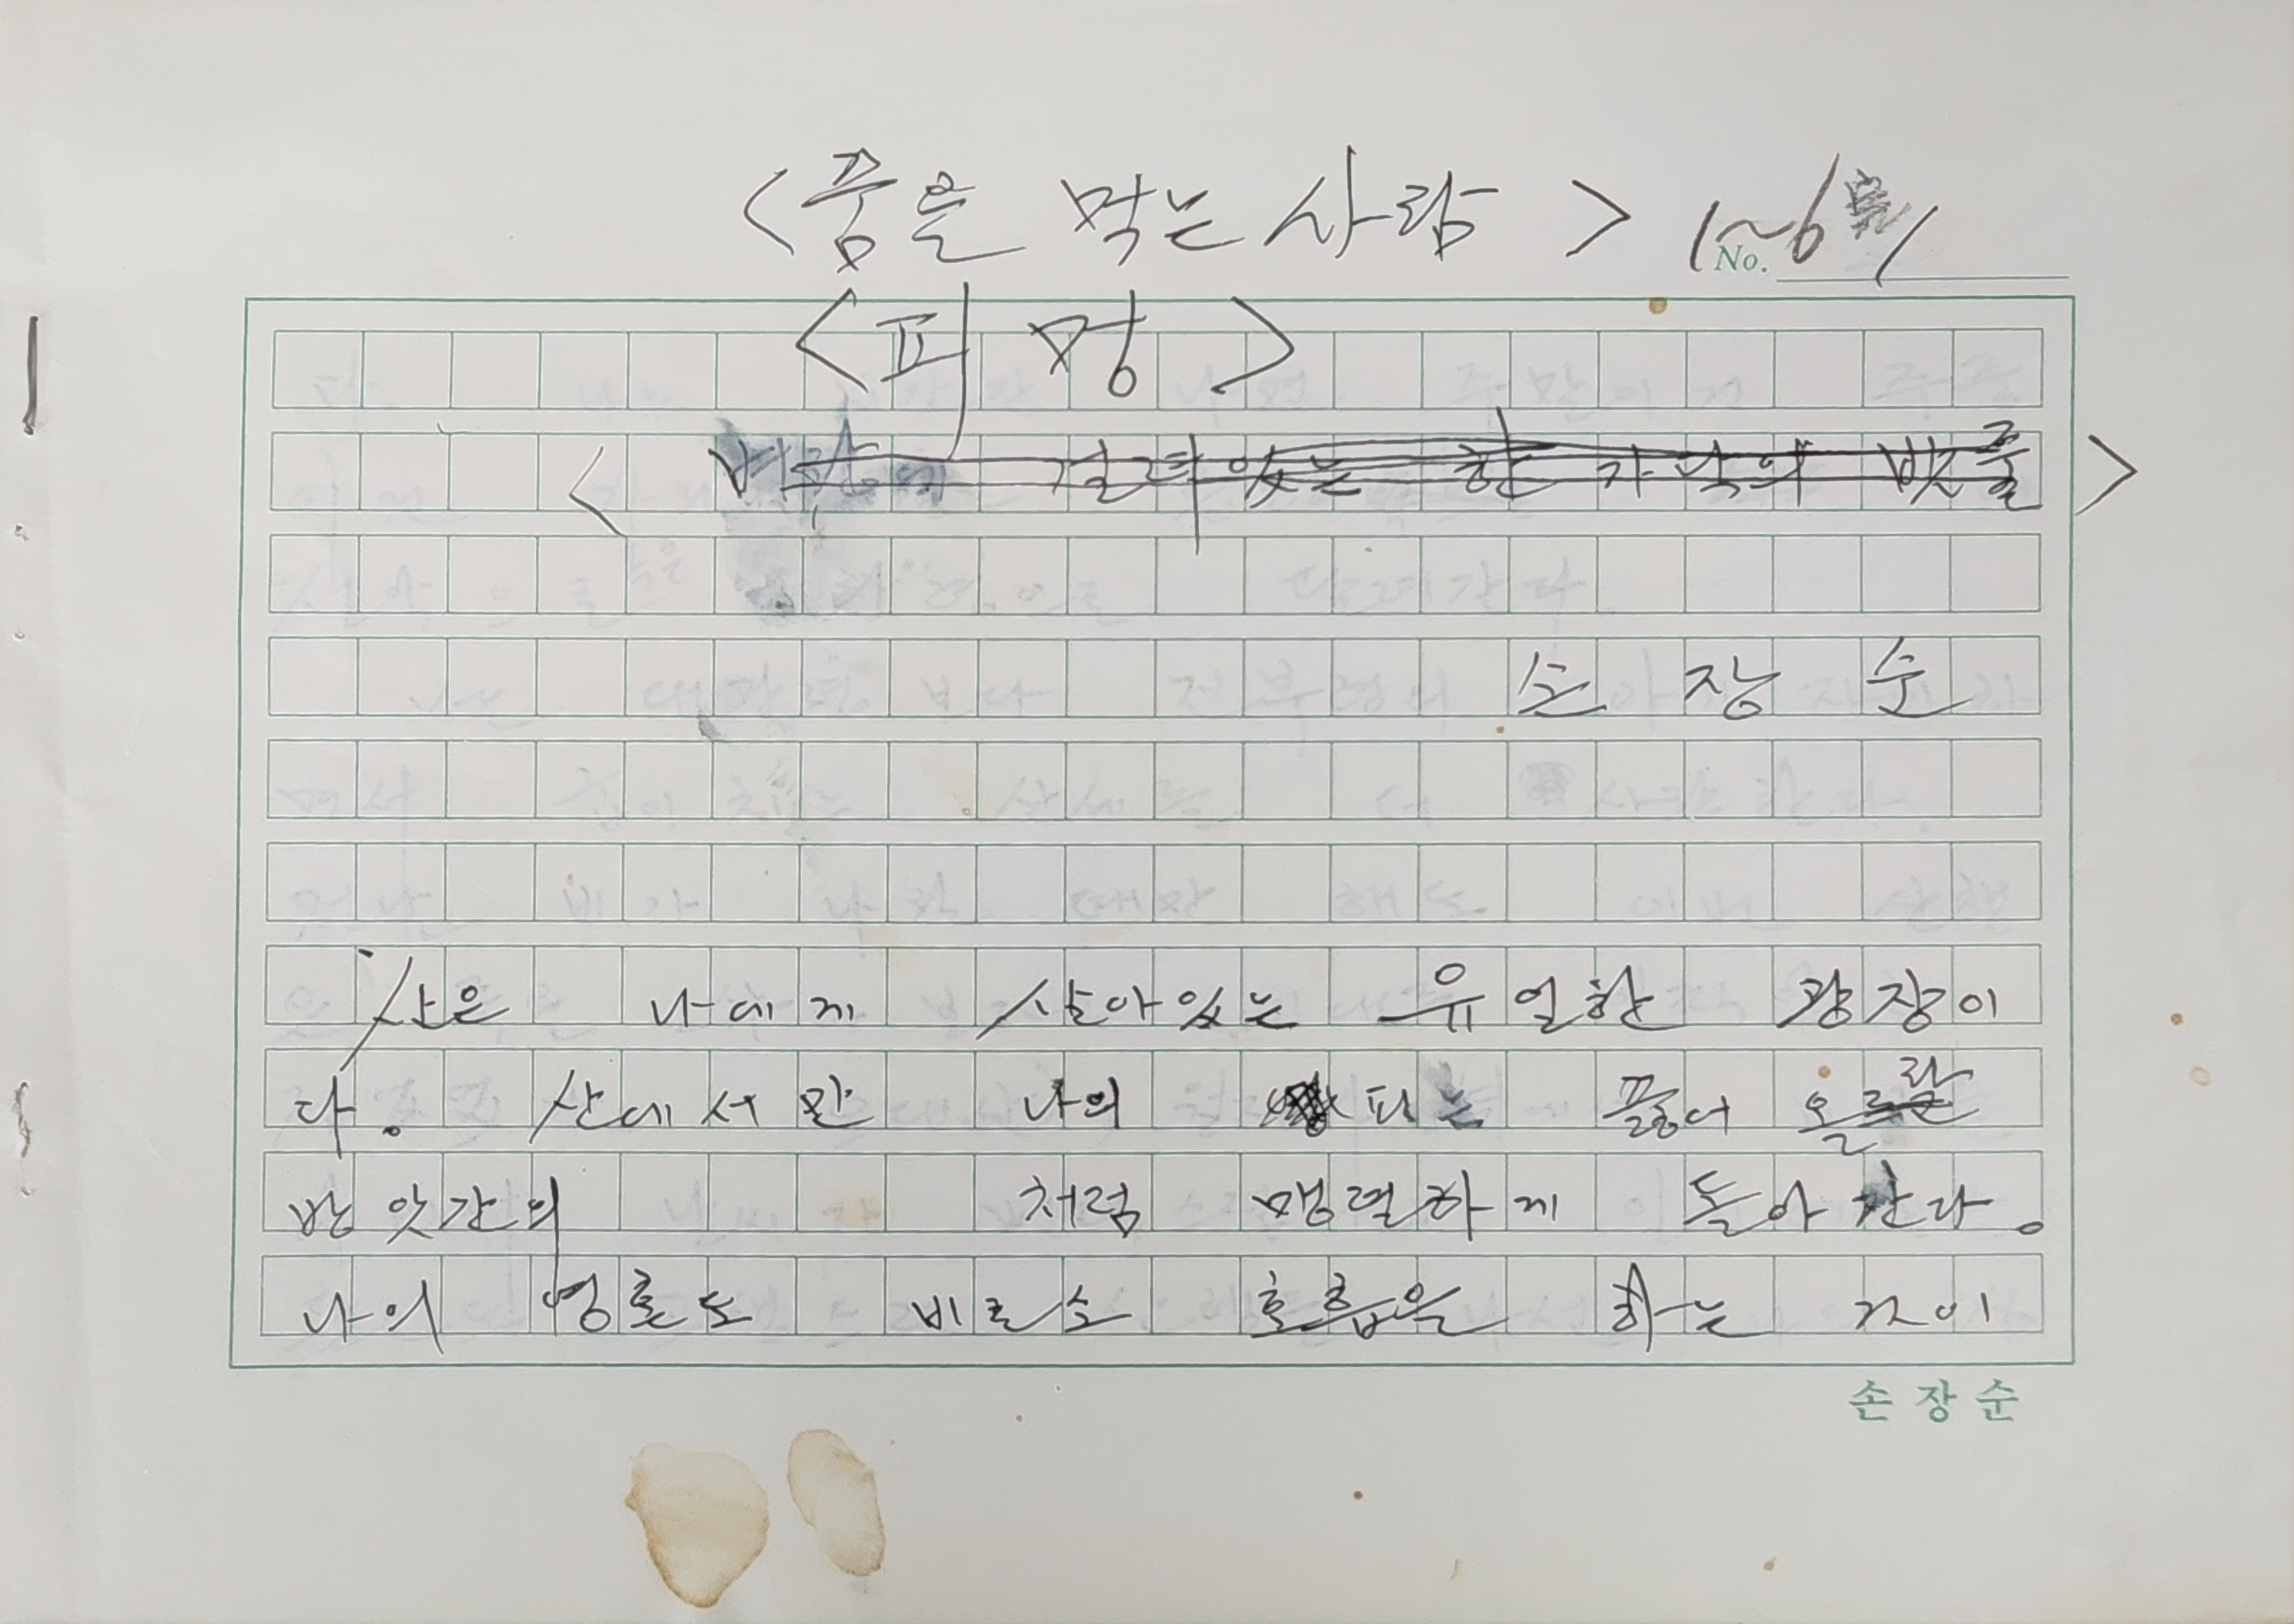 <꿈을 먹는 사람> 1~6
No.
<피멍>
< 벼랑에 걸려있는 한 가닥의 밧줄 >
손 장 순
산은 나에게 살아있는 유일한 광장이
다. 산에서만 나의 피는 끓어 올라
방앗간의 처럼 맹렬하게 돌아간다.
나의 영혼도 비로소 호흡을 하는 것이
손 장 순